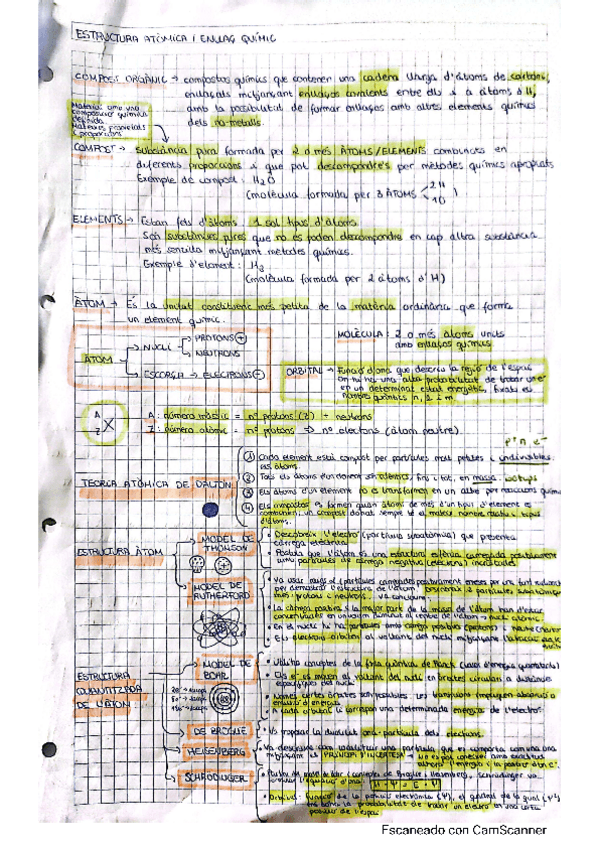 ESTRUCTURA ATÒMICA I ENLLAÇ QUÍMIC
COMPOST ORGÀNIC → compostos químics que contenen una cadena llarga d'àtoms de carboni,
enllaçats mitjançant enllaços covalents entre ells i a àtoms d'H,
amb la possibilitat de formar enllaços amb altres elements químics
dels no-metalls.
Material amb una
composició química
definida.
Mateixes propietats
i proporcions
COMPOST → substància pura formada per 2 o més ÀTOMS/ELEMENTS combinats en
diferents proporcions i que pot descompondre's per mètodes químics apropiats
Exemple de compost: H2O
(molècula formada per 3 ÀTOMS 2H 1O)
ELEMENTS → Estan fets d'àtoms 1 sol tipus d'àtoms.
Són substàncies pures que no es poden descompondre en cap altra substància
més senzilla mitjançant mètodes químics.
Exemple d'element: H2
(molècula formada per 2 àtoms d'H)
ÀTOM → És la unitat constituent més petita de la matèria ordinària que forma
un element químic.
ÀTOM
NUCLI
PROTONS +
NEUTRONS
ESCORÇA → ELECTRONS -
MOLÈCULA: 2 o més àtoms units
amb enllaços químics
ORBITAL → Funció d'ona que descriu la regió de l'espai
on hi ha una alta probabilitat de trobar un e-
en un determinat estat energètic, fixats els
nombres quàntics n, l i m.
A
Z X
A: número màssic = nº protons (Z) + neutrons
Z: número atòmic = nº protons ⇒ nº electrons (àtom neutre)
p+ n, e-
TEORIA ATÒMICA DE DALTON
1 Cada element està compost per partícules molt petites i indivisibles:
els àtoms.
2 Tots els àtoms d'un element són idèntics, fins i tot, en massa. isòtops
3 Els àtoms d'un element no es transformen en un altre per reaccions químiq
4 Els compostos es formen quan àtoms de més d'un tipus d'element es
combinen; un compost donat sempre té el mateix nombre relatiu i tipus
d'àtoms.
ESTRUCTURA ÀTOM
MODEL DE
THOMSON
• Descobreix l'electró (partícula subatòmica) que presenta
càrrega elèctrica.
• Postula que l'àtom és una estructura esfèrica carregada positivament
amb partícules de càrrega negativa (electrons) incrustades
MODEL DE
RUTHERFORD
• Va usar raigs α (partícules carregades positivament
per demostrar l'estructura de l'àtom.
protons i neutrons. Va concloure:
• La càrrega positiva i la major part de la massa de l'àtom han d'estar
concentrades en un volum diminut al centre de l'àtom → nucli atòmic
• En el nucli hi ha partícules amb càrrega positiva (protons) i
• Els electrons orbiten al voltant del nucli mitjançant l'atracció
ESTRUCTURA
QUANTITZADA
DE L'ÀTOM
MODEL DE
BOHR
• Utilitza conceptes de la física quàntica de Planck
• Els e- es mouen al voltant del nucli en òrbites circulars a distàncies
específiques del nucli.
• Només certes òrbites són possibles. Les transicions impliquen absorció o
emissió d'energia
• A cada òrbita li correspon una determinada energia de l'electró.
DE BROGLIE
• Va proposar la dualitat ona-partícula dels electrons.
HEISENBERG
• Va descriure com localitzar una partícula que es comporta com una ona
mitjançant el PRINCIPI D'INCERTESA
no es pot conèixer amb exactitud
alhora l'energia i la posició d'un e-.
SCHRÖDINGER
(conceptes de Broglie i Heisenberg), Schrödinger va
H · Ψ = E · Ψ
• Orbital: funció
la probabilitat de trobar un electró en una certa
posició de l'espai.
Escaneado con CamScanner